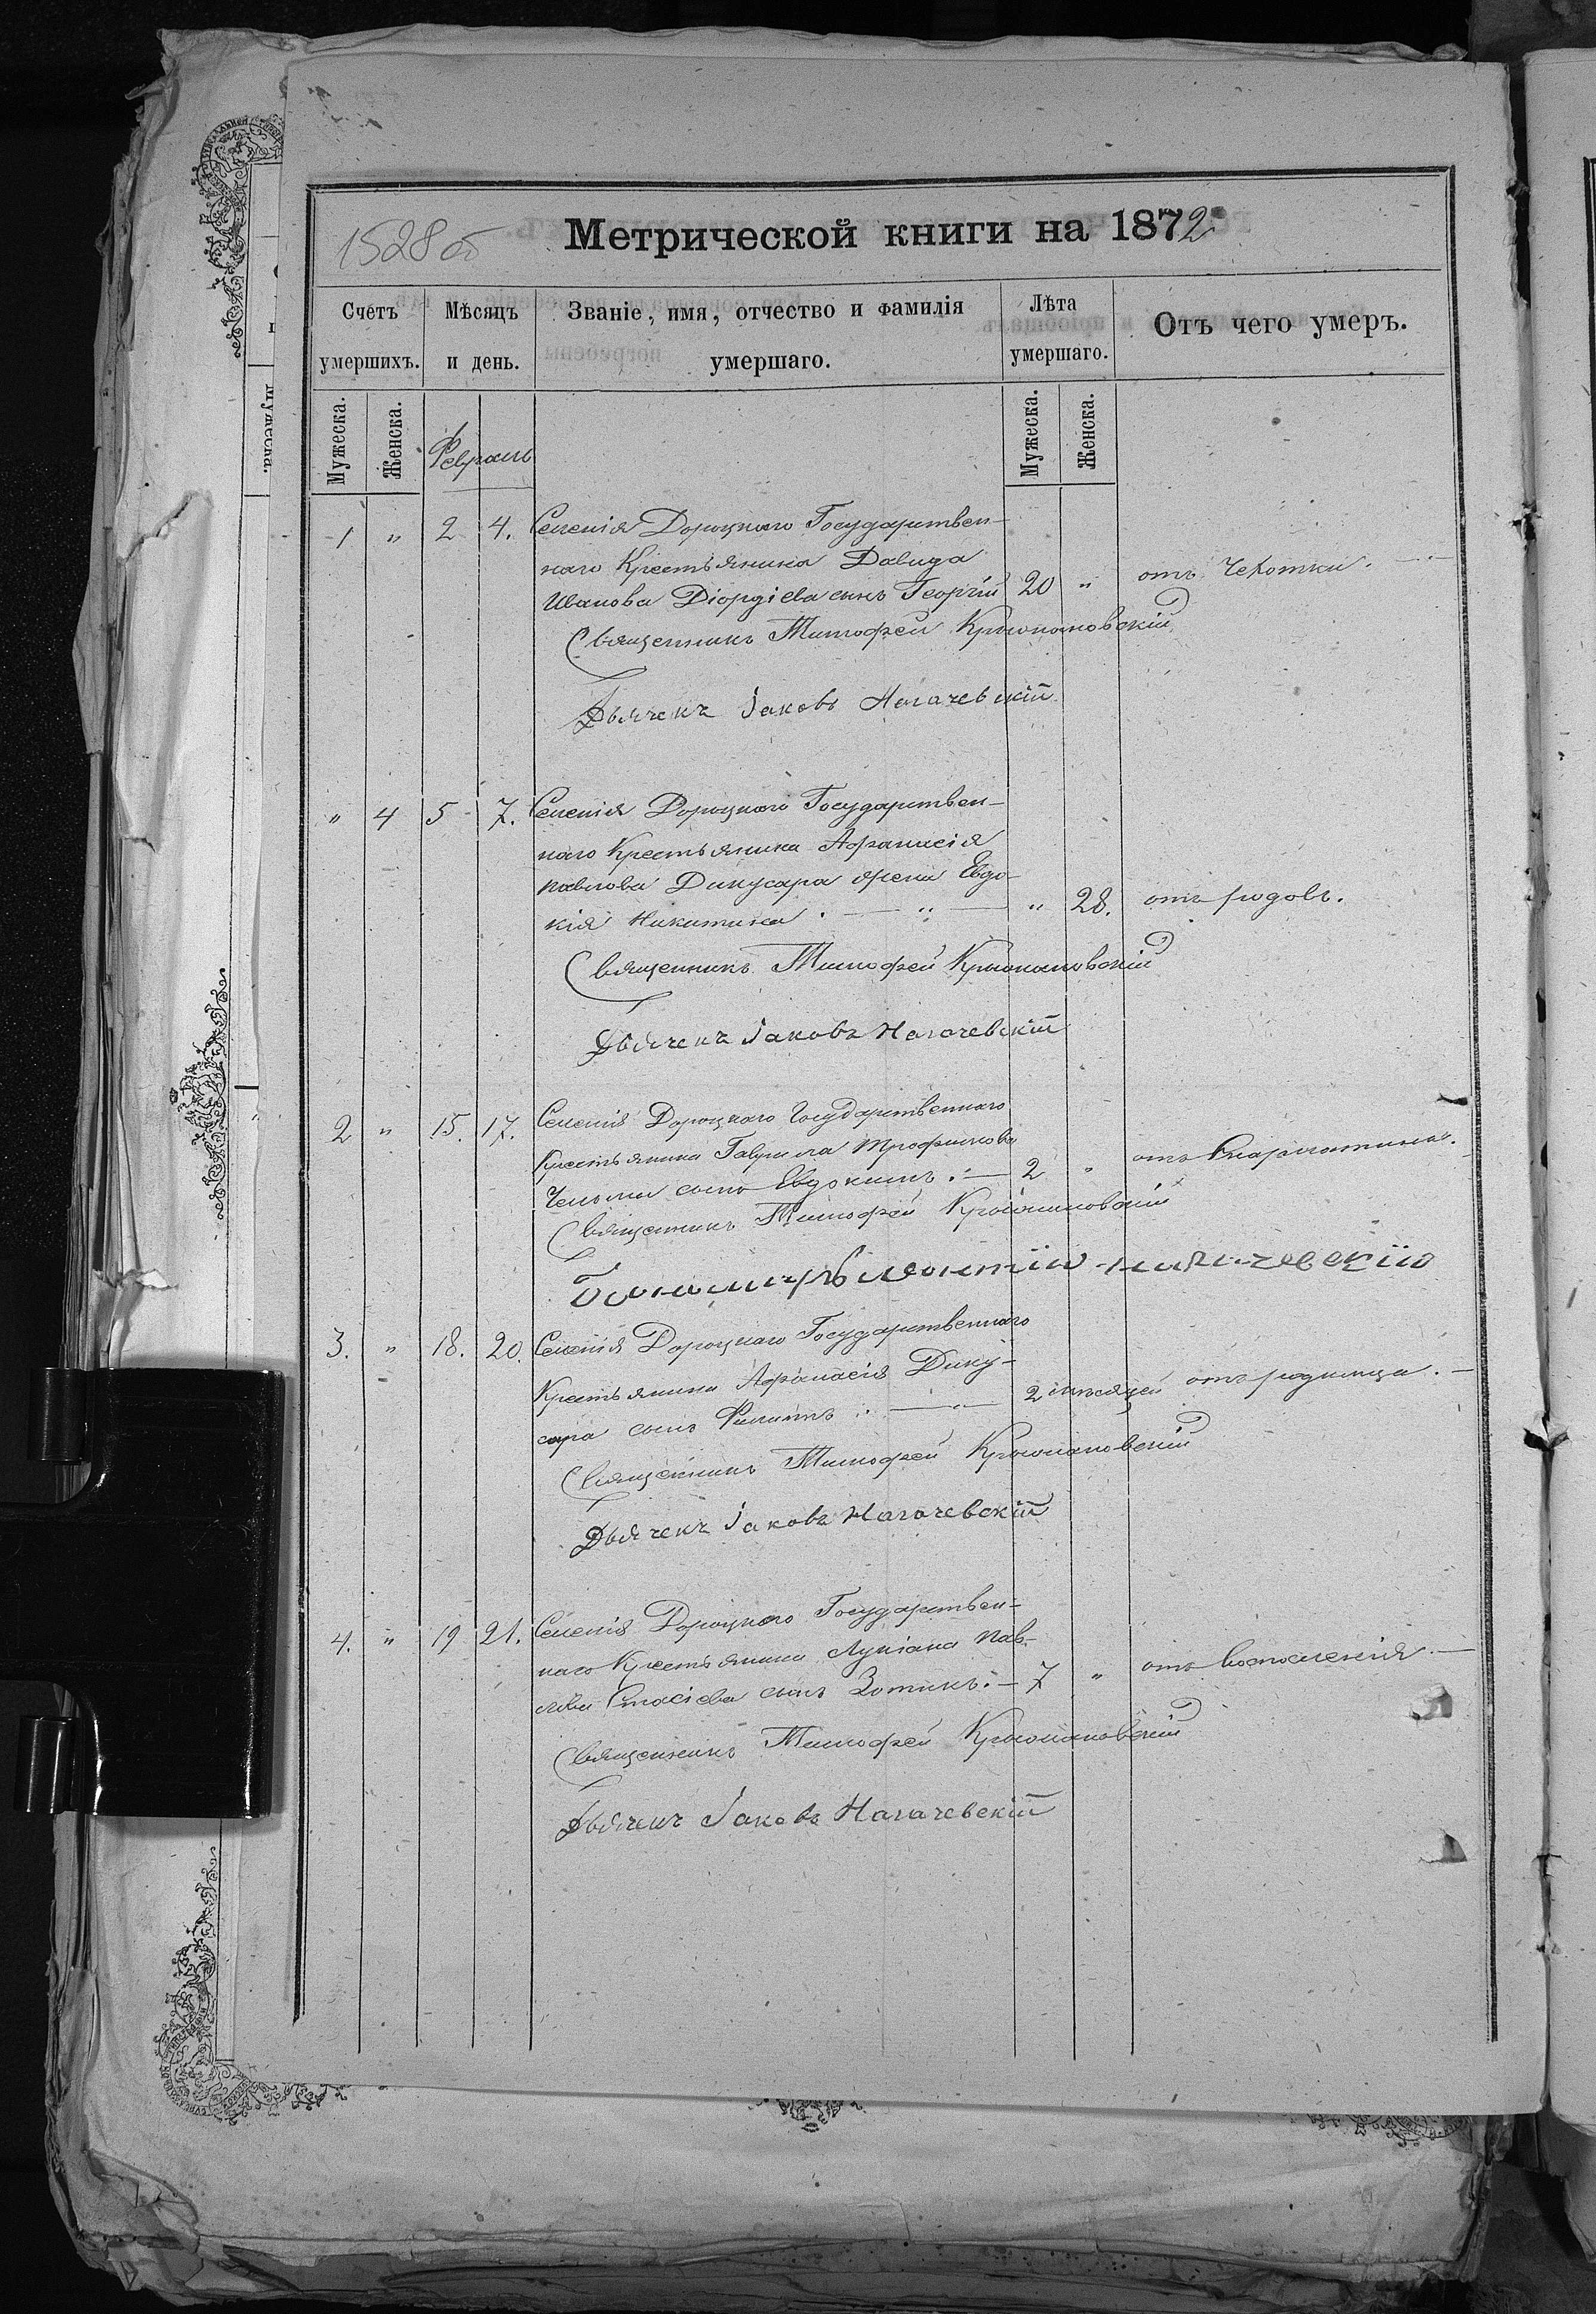 1528 об
Метрической книги на 1872
Счетъ умершихъ.
Мѣсяцъ и день.
Званіе, имя, отчество и фамилія умершаго.
Лѣта умершаго.
Отъ чего умеръ.
Мужеска. Женска. Февраль Мужеска. Женска.
1 „ 2 4. Селенія Дороцкаго Государствен-
наго Крестьянина Давида
Иванова Діоргіева сынъ Георгій 20 „ отъ Чехотки.
Священникъ Тимофей
Дьячекъ Іаковъ Нагачевскій
„ 4 5 7. Селенія Дороцкаго Государствен-
наго Крестьянина Афанасія
Павлова Дикусара жена Евдо-
кія Никитина. „ 28. отъ родовъ.
Священникъ Тимофей
Дьячекъ Іаковъ Нагачевскій
2 „ 15. 17. Селенія Дороцкаго Государственнаго
Крестьянина Гаврила Трофимова
сынъ Евдокимъ. 2 „ отъ
Священникъ Тимофей
Пономарь Леонтій
3. „ 18. 20. Селенія Дороцкаго Государственнаго
Крестьянина Афанасія Дику-
сара сынъ Филиппъ. „ 2 мѣсяцей отъ родимца.
Священникъ Тимофей
Дьячекъ Іаковъ Нагачевскій
4. „ 19 21. Селенія Дороцкаго Государствен-
наго Крестьянина Лукіана Пав-
лова сынъ Зотикъ. 7 „ отъ восполенія.
Священникъ Тимофей
Дьячекъ Іаковъ Нагачевскій